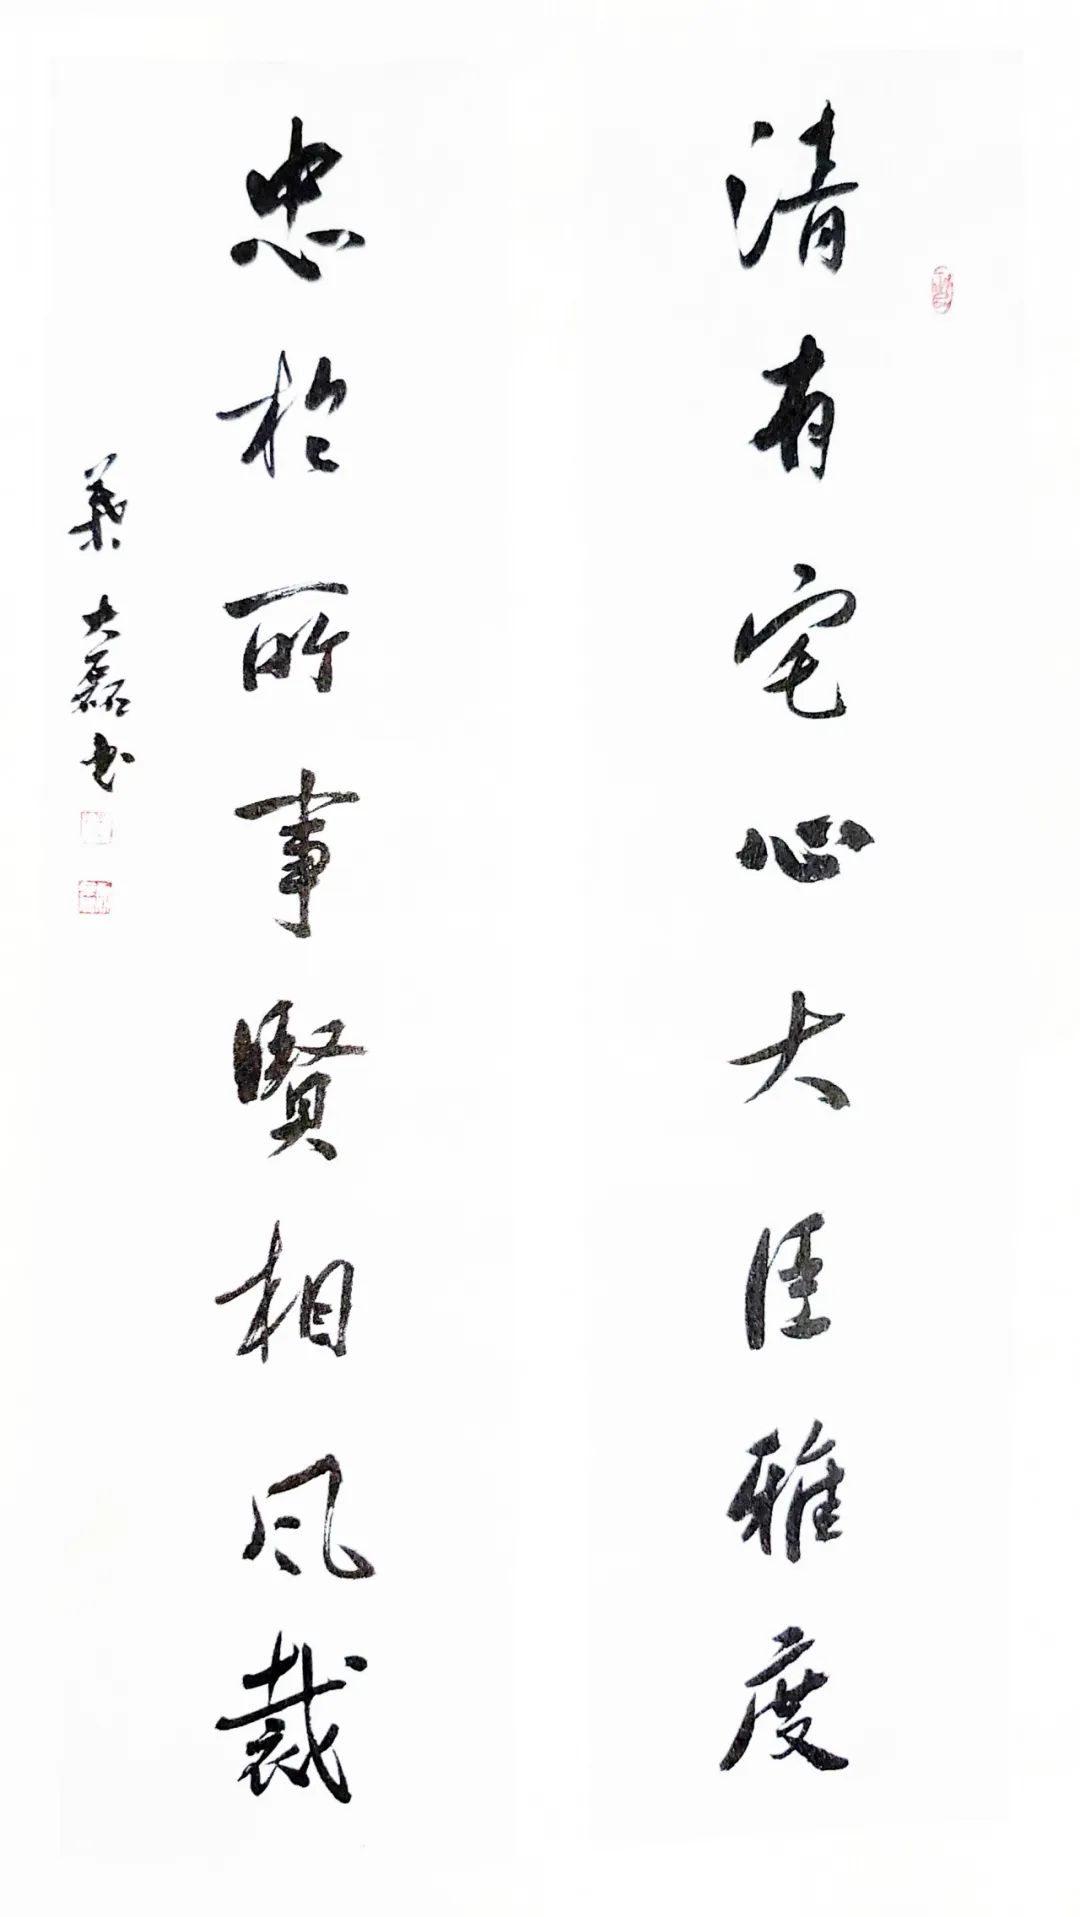 清有宅心大佳雅度
忠於所事賢相風裁
葉大磊书